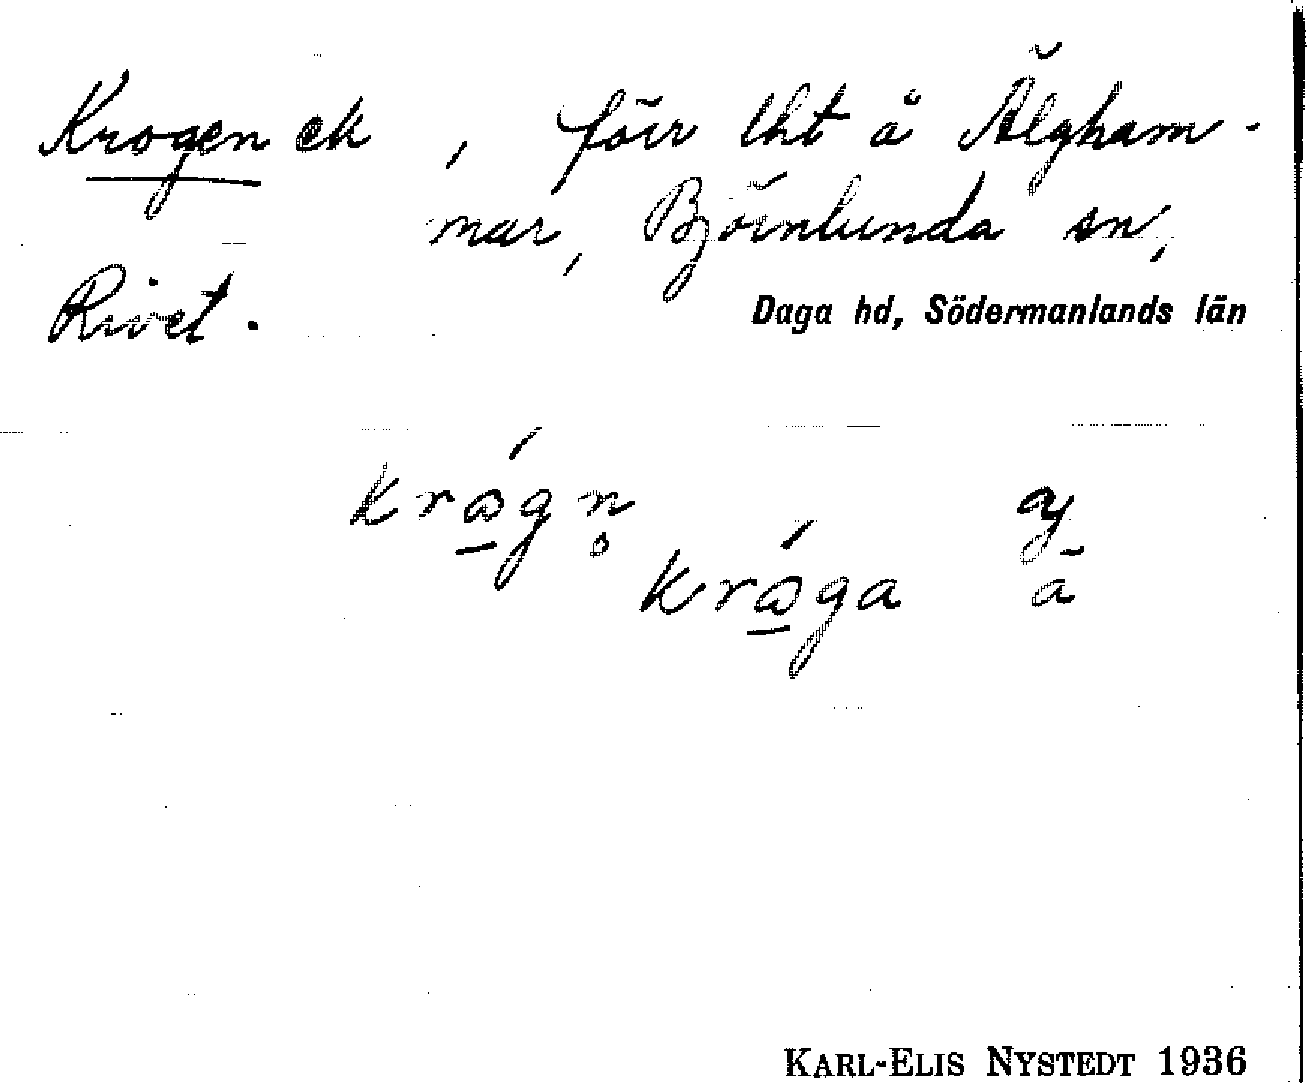 Krogen ek, förr lht å Älgham-
mar, Björnlunda sn,
Rivet.
Daga hd, Södermanlands län
krågn̥
kråga
a
ä
KARL-ELIS NYSTEDT 1936